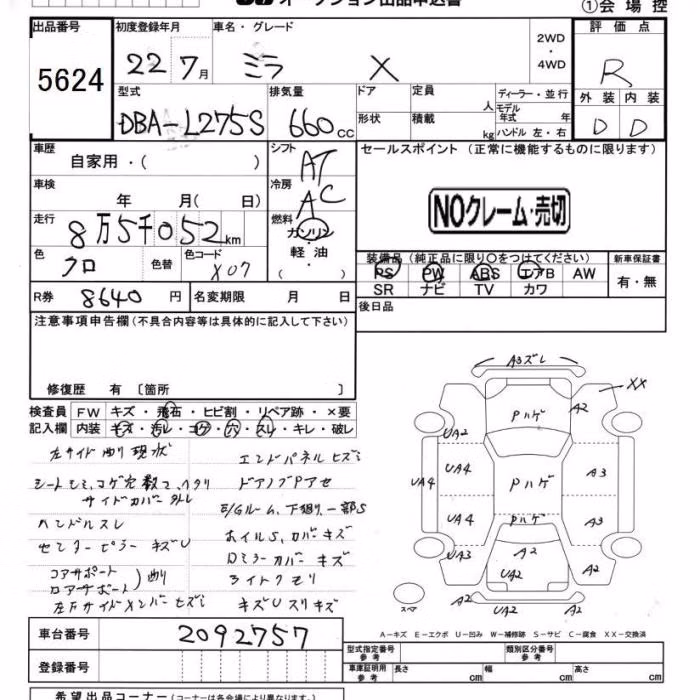 オークション出品申込書
①会場控
出品番号
5624
初度登録年月
22年7月
車名・グレード
ミラ X
2WD
4WD
評価点
R
外装 内装
D D
型式
DBA-L275S
排気量
660cc
ドア
定員
人
ディーラー・並行
モデル年式
年
形状
積載
kg
ハンドル 左・右
車歴
自家用・( )
シフト
AT
車検
年 月(日)
冷房
AC
走行
8万5千052km
燃料
ガソリン
軽油
( )
色
クロ
色替
色コード
X07
R券
8640円
名変期限
月 日
セールスポイント (正常に機能するものに限ります)
NOクレーム・売切
装備品 (純正品に限り○をつけてください)
PS PW ABS エアB AW
SR ナビ TV カワ
新車保証書
有・無
後日品
注意事項申告欄 (不具合内容等は具体的に記入して下さい)
修復歴 有 〔箇所 〕
検査員
記入欄
FW キズ・飛石・ヒビ割・リペア跡・×要
内装 キズ・汚レ・コゲ・穴・スレ・キレ・破レ
左サイド曲り現状
シートシミ、コゲ穴数コ、ヘタリ
サイドカバー外レ
ハンドルスレ
センターピラーキズU
コアサポート
ロアサポート ) 曲り
左Fサイドメンバーヒズミ
エンドパネルヒズミ
ドアノブPアセ
E/Gルーム、下廻り一部S
ホイルS、カバーキズ
Dミラーカバーキズ
ライトクモリ
キズUスリキズ
A3ズレ
XX
Pハゲ
A2
UA2
UA4
UA4
PハゲA3
UA4
Pハゲ
A3
UA3
A2
A2
UA2
スペア
A2
UA2
A2
A-キズ E-エクボ U-凹み W-補修跡 S-サビ C-腐食 XX-交換済
車台番号
2092757
登録番号
型式指定番号
参考
類別区分番号
参考
車庫証明用
参考
長さ cm
幅 cm
高さ cm
希望出品コーナー (コーナーは各会場により異なります)